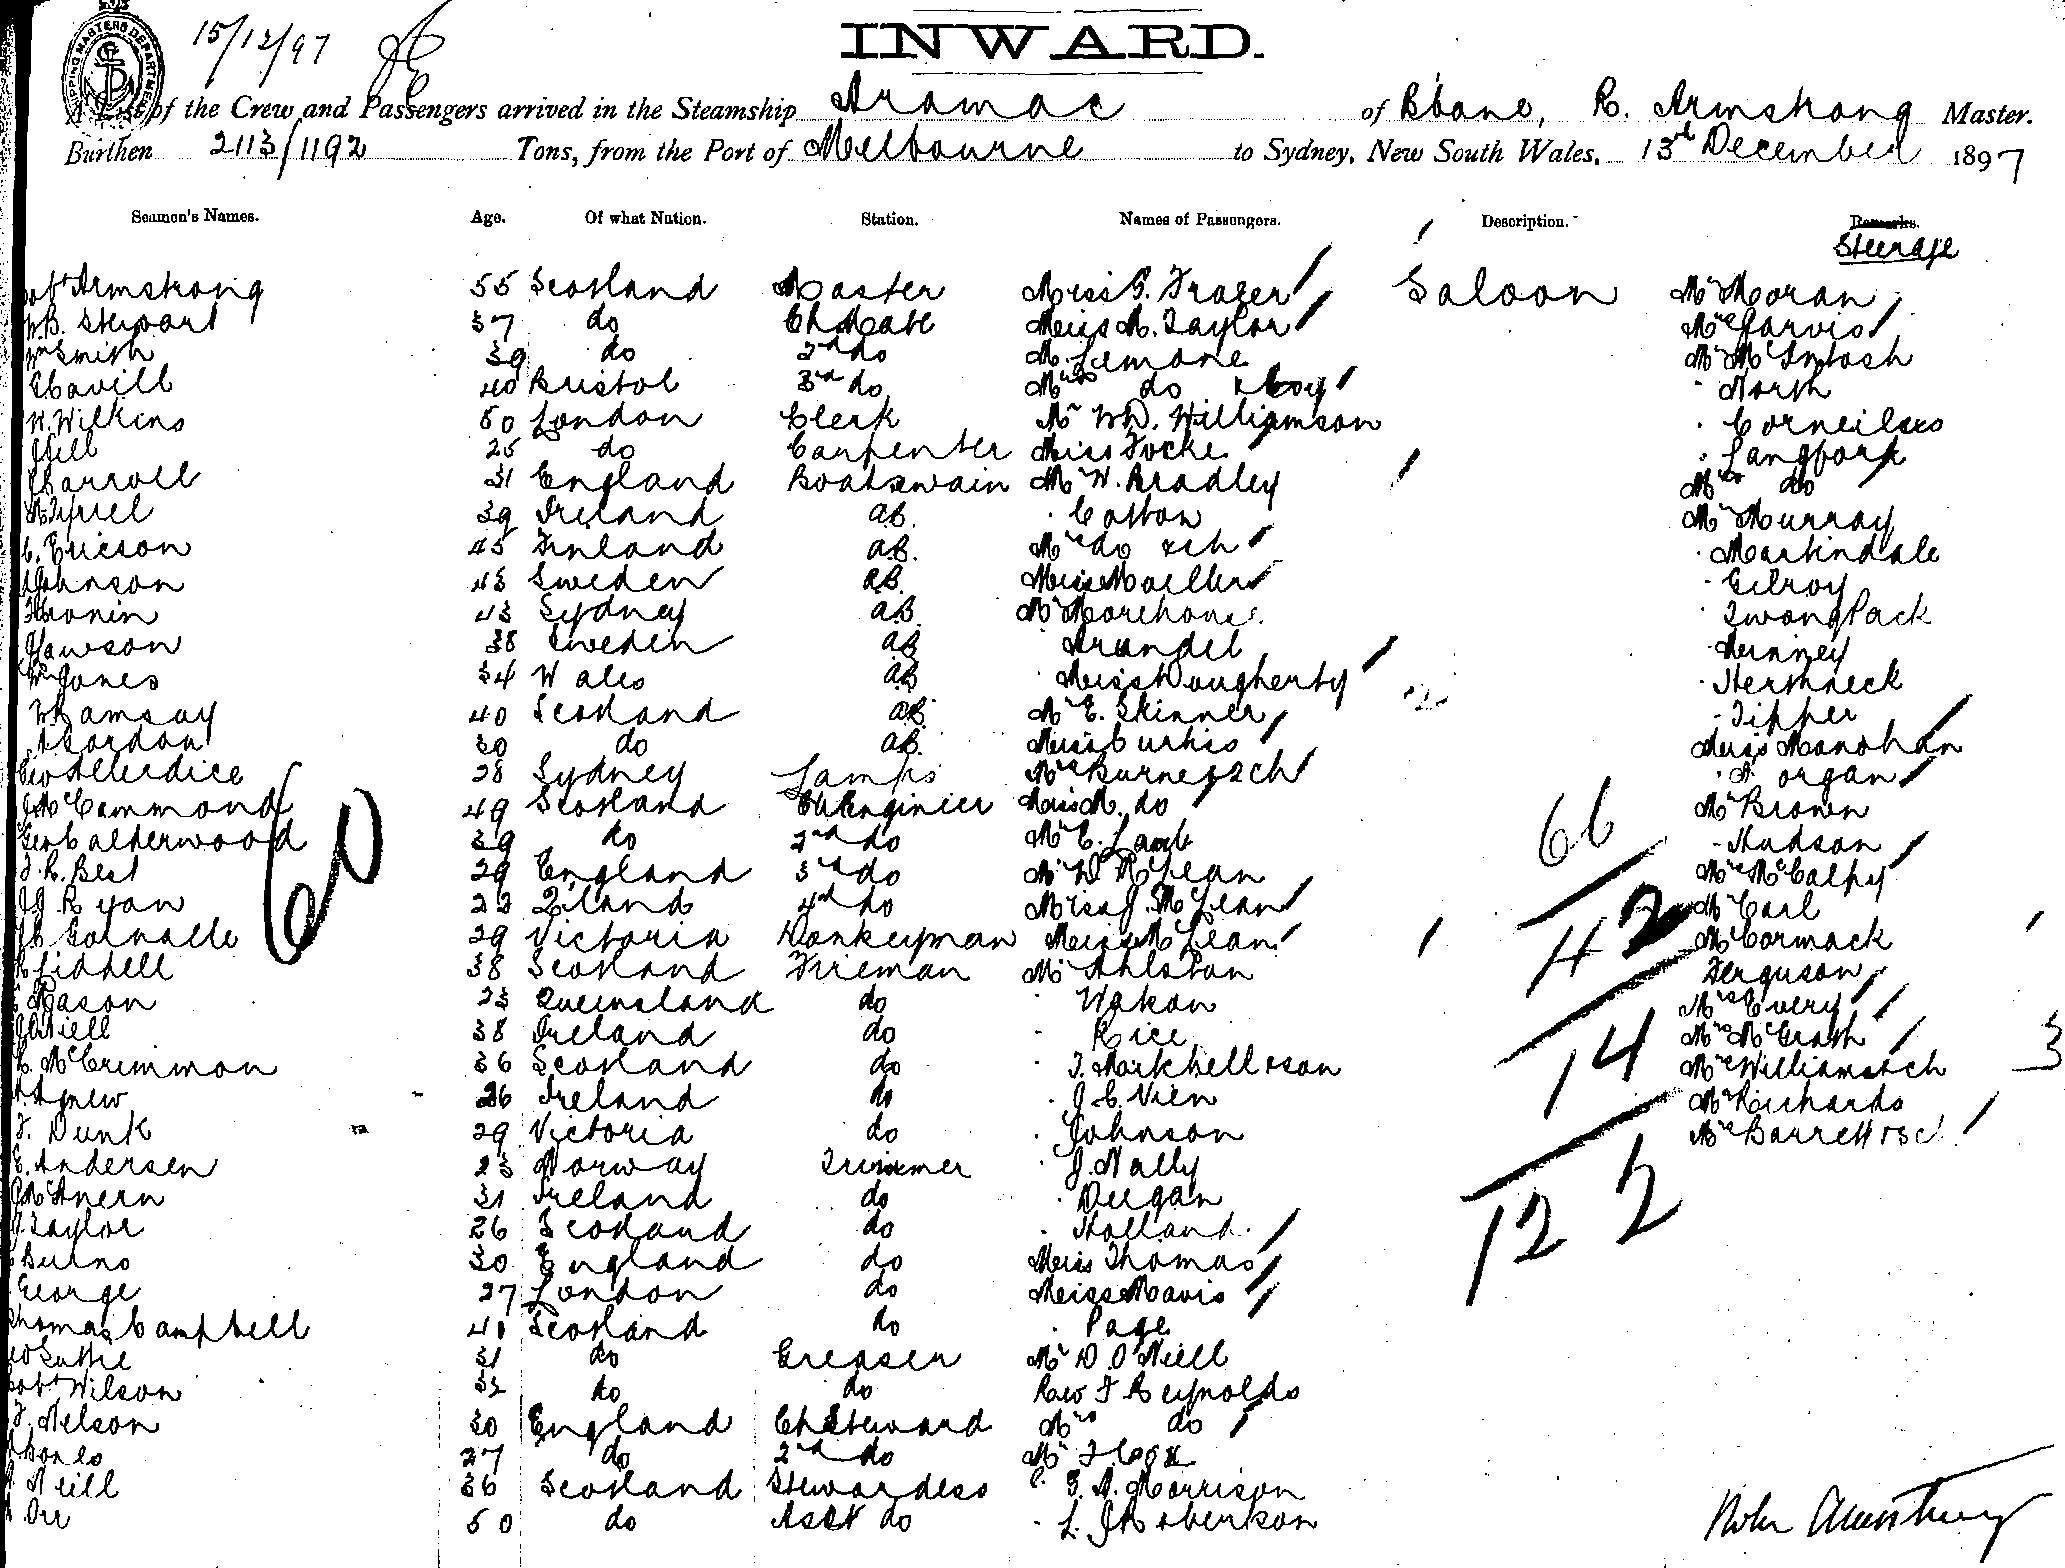 15/12/97
INWARD.
A List of the Crew and Passengers arrived in the Steamship Aramac of Bbane, R. Armstrong Master.
Burthen 2113/1192 Tons, from the Port of Melbourne to Sydney, New South Wales, 13th December 1897
Seamen's Names. Age. Of what Nation. Station. Names of Passengers. Description. Remarks.
Steerage
Robt Armstrong 55 Scotland Master Miss G. Frazer Saloon Mr Moran
W B. Stewart 37 do Ch Mate Miss M. Taylor Mrs Jarvis
Wm Smith 39 do 2nd do M. Lemone Mr McIntosh
Cavill 40 Bristol 3rd do Mrs do & boy " North
W. Wilkins 50 London Clerk Mr W D. Williamson " Corneilus
Hill 25 do Carpenter Miss Focke " Langford
Carroll 31 England Boatswain Mr W. Bradley Mrs do
39 Ireland a.B. " Cotton Mr Murray
C. Ericson 45 Finland a.B. Mrs do & ch " Martindale
Johnson 43 Sweden a.B. Miss Moeller " Gilroy
Cronin 43 Sydney a.B. Mr Morehouse " Kwong Pack
Lawson 38 Sweden a.B. " Arundel
Wm Jones 34 Wales a.B. Miss Dougherty " Hermneck
W Ramsay 40 Scotland a.B. Mr E. Skinner " Tipper
Gordon 30 do a.B. Miss Curtis Miss Monohan
Geo Allerdice 28 Sydney Lamps Mrs Burne & 2 ch
J McCammond 49 Scotland Ch Engineer Miss M. do Mr Brown
Geo Calderwood 39 do 2nd do Mr C. Lamb " Hudson
60 66
T. R. Best 29 England 3rd do Mr D McLean Mrs McCalpy
J J Ryan 22 Zland 4th do Miss J. McLean Mr Carl
42
29 Victoria Donkeyman Miss McLean Mr Cormack
R Liddell 38 Scotland Fireman Mr Ahlston Ferguson
Mason 23 Queensland do " Wakon Mrs Every
Neill 38 Ireland do " Rice Mrs McGrath
14
R. McCrimmon 36 Scotland do " T. Mitchell & son Mrs Williams & ch 3
Agnew 26 Ireland do " J. C. Vien Mr Richards
F. Dunk 29 Victoria do " Johnson Mrs Barrett & 3 c
E. Andersen 23 Norway Trimmer " J. Nally
McAnern 31 Ireland do " Deegan
122
J. Taylor 26 Scotland do " Holland
Burns 30 England do Miss Thomas
George 27 London do Miss Mavis
Thomas Campbell 41 Scotland do " Page
31 do Greaser Mr D. O'Neill
Robt Wilson 32 do do Rev F Reynolds
F. Nelson 30 England Ch Steward Mrs do
27 do 2nd do Mr
Neill 36 Scotland Stewardess " G. A. Morrison
Orr 50 do Asst do " L. J Roberkson
Robt Armstrong